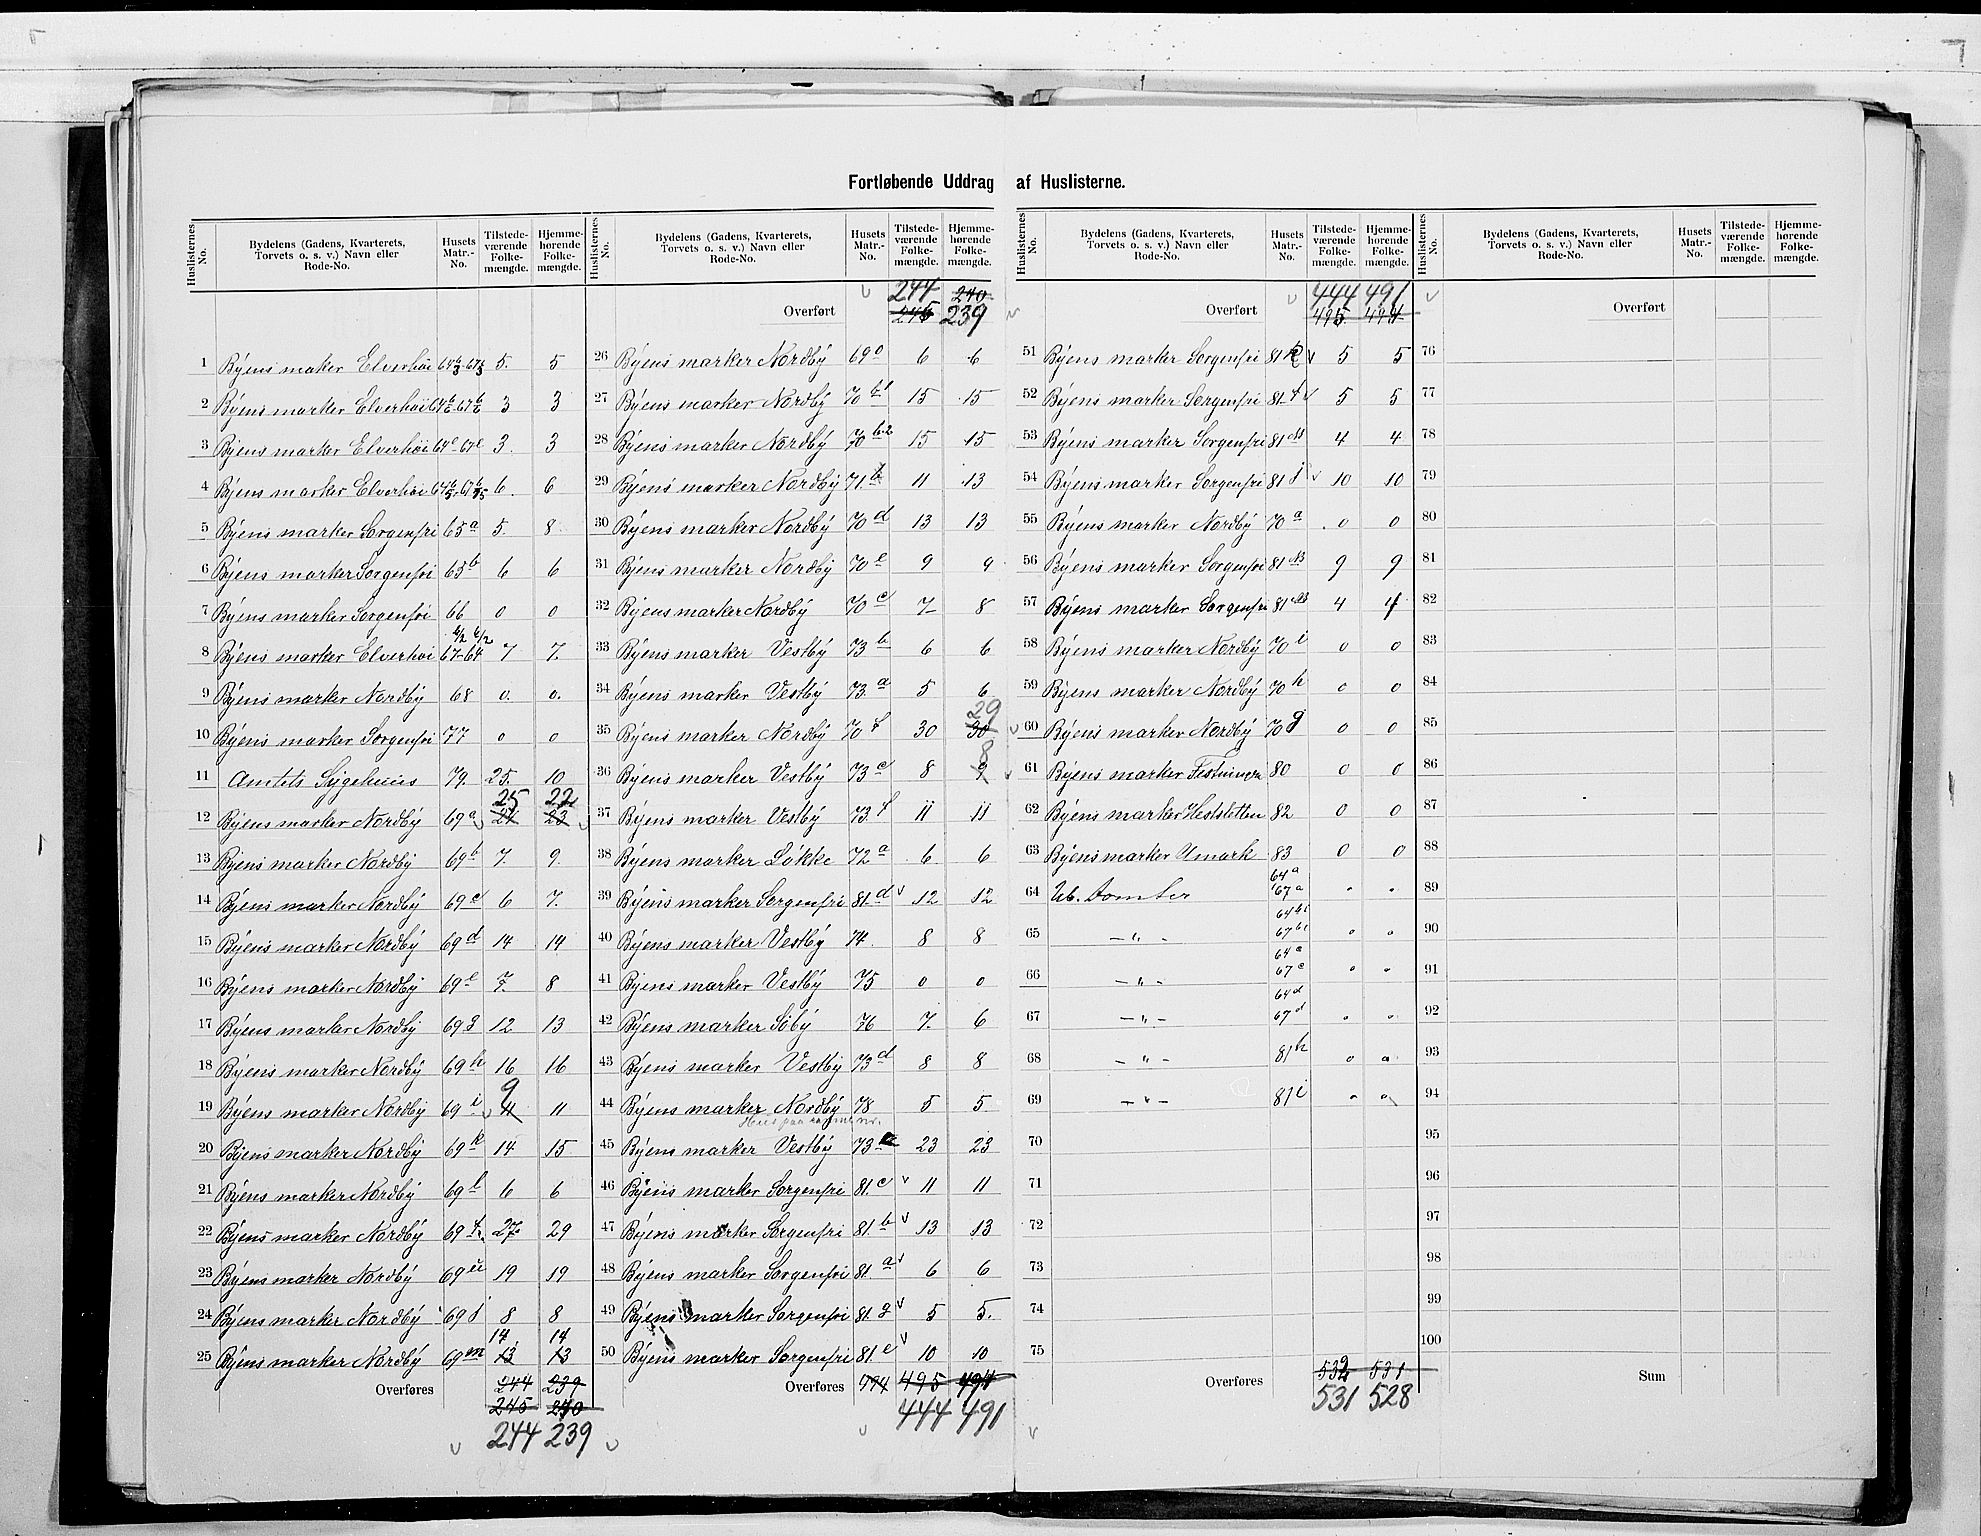 Fortløbende Uddrag af Huslisterne.
Huslisternes No. Bydelens (Gadens, Kvarterets, Torvets o. s. v.) Navn eller Rode-No. Husets Matr.-No. Tilstedeværende Folkemængde. Hjemmehørende Folkemængde.
1 Býens maker Elverhöi 5. 5
2 Býens marker Elverhöi 3 3
3 Býens marker Elverhöi 64e-67e 3. 3
4 Býens marker Elverhöi 6. 6
5 Býens marker Sorgenfri 65a 5. 8
6 Býens marker Sorgenfri 65b 6 6
7 Býens marker Sorgenfri 66 0 0
8 Býens marker Elverhöi 67-64 7 7
9 Býens marker Nordbý 68 0. 0.
10 Býens marker Sorgenfri 77 0 0
11 Amtets Sygehuus 79. 25. 10
25 22
12 Býens marker Nordbý 69a 24 23
13 Býens marker Nordbý 69b 7. 9.
14 Býens marker Nordbý 69c 6 7.
15 Býens marker Nordbý 69d 14 14
16 Býens marker Nordbý 69e 7. 8
17 Býens marker Nordbý 69g 12 13
18 Býens marker Nordbý 69h 16 16
9
19 Býens marker Nordbý 69i 11 11
20 Býens marker Nordbý 69k 14 15
21 Býens marker Nordbý 69l 6 6
22 Býens marker Nordbý 69f. 27 29
23 Býens marker Nordbý 69 19 19
24 Býens marker Nordbý 69j 8 8
14 14
25 Býens marker Nordbý 69m 13 13
Overføres 244 239
245 240
244 239
Huslisternes No. Bydelens (Gadens, Kvarterets, Torvets o. s. v.) Navn eller Rode-No. Husets Matr.-No. Tilstedeværende Folkemængde. Hjemmehørende Folkemængde.
244 240
Overført 245 239
26 Býens marker Nordbý 69o 6 6
27 Býens marker Nordbý 70b1 15 15
28 Býens marker Nordbý 70b2 15 15
29 Býens marker Nordbý 71.b 11 13
30 Býens marker Nordbý 70d 13 13
31 Býens marker Nordbý 70e 9 9
32 Býens marker Nordbý 70c 7 8
33 Býens marker Vestbý 73b 6 6
34 Býens marker Vestbý 73a 5 6
29
35 Býens marker Nordbý 70f 30 30
8
36 Býens marker Vestbý 73c 8 9
37 Býens marker Vestbý 73.f 11 11
38 Býens marker Løkke 72a 6 6
39 Býens marker Sorgenfri 81.d 12 12
40 Býens marker Vestbý 74. 8 8
41 Býens marker Vestbý 75 0 0
42 Býens marker Söbý 76 7. 6
43 Býens marker Vestbý 73d 8 8
44 Býens marker Nordbý 78 5 5.
45 Býens marker Vestbý 73 23 23
46 Býens marker Sorgenfri 81.c 11 11
47 Býens marker Sorgenfri 81.b 13 13
48 Býens marker Sorgenfri 81.a 6 6
49 Býens marker Sorgenfri 81.g 5 5.
50 Býens marker Sorgenfri 81.e 10 10
Overføres 494 495 494
444 491
Huslisternes No. Bydelens (Gadens, Kvarterets, Torvets o. s. v.) Navn eller Rode-No. Husets Matr.-No. Tilstedeværende Folkemængde. Hjemmehørende Folkemængde.
444 491
Overført 495. 494
51 Býens marker Sorgenfri 81k 5 5
52 Býens marker Sorgenfri 81.f 5 5
53 Býens marker Sorgenfri 81 4 4
54 Býens marker Sorgenfri 81j 10 10
55 Býens marker Nordbý 70a 0 0
56 Býens marker Sorgenfri 81 9 9
57 Býens marker Sorgenfri 81 4 4
58 Býens marker Nordbý 70i 0 0
59 Býens marker Nordbý 70h 0 0
60 Býens marker Nordbý 70g 0 0
61 Býens marker 80 0 0
62 Býens marker 82 0 0
63 Býens marker Umark 83 0 0
64 Ub. Tomter 64a 67a 0 0
65 — " — 64b1 67b1 0 0
66 — " — 67c 0 0
67 — " — 64d 67d 0 0
68 — " — 81h 0 0
69 — " — 81i 0 0
70
71
72
73
74
75
532 531
Overføres 531 528
Huslisternes No. Bydelens (Gadens, Kvarterets, Torvets o. s. v.) Navn eller Rode-No. Husets Matr.-No. Tilstedeværende Folkemængde. Hjemmehørende Folkemængde.
Overført
76
77
78
79
80
81
82
83
84
85
86
87
88
89
90
91
92
93
94
95
96
97
98
99
100
Sum